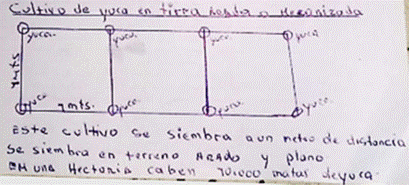 Cultivo de yuca en tierra Arada o Mecanizada
yuca. yuca. yuca. yuca
1 mts
yuca 1 mts. yuca. yuca. yuca.
Este cultivo se siembra a un metro de distancia
se siembra en terreno ARADO y plano
EN una Hectaria caben 10.000 matas de yuca.